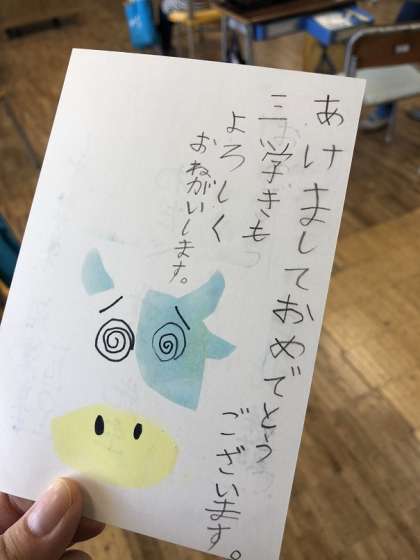 あけましておめでとう
ございます。
三学きも
よろしく
おねがいします。